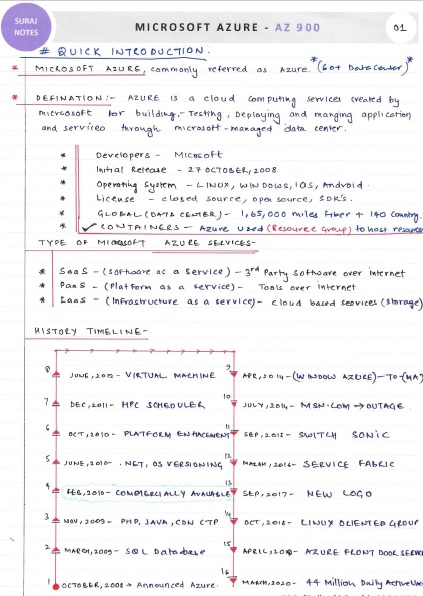 SURAJ
NOTES
MICROSOFT AZURE - AZ 900
01
# QUICK INTRODUCTION.
* MICROSOFT AZURE, commonly referred as Azure. *(60+ Data Center)*
* DEFINATION:- AZURE IS a cloud computing services created by
microsoft for building, Testing, Deploying and manging application
and services through microsoft-managed data center.
* Developers - Microsoft
* Initial Release - 27 OCTOBER, 2008
* Operating System - LINUX, WINDOWS, iOS, Android.
* License - closed source, open source, SDK's.
* GLOBAL (DATA CENTER) - 1,65,000 miles Fiber + 140 Country.
✓ CONTAINERS - Azure used (Resource Group) to host resources
TYPE OF Microsoft AZURE SERVICES-
* SaaS - (Software as a Service) - 3rd Party Software over internet
* PaaS - (Platform as a service) - Tools over internet
* IaaS - (Infrastructure as a service) - cloud based services (Storage)
HISTORY TIMELINE-
8 JUNE, 2012 - VIRTUAL MACHINE
7 DEC, 2011 - HPC SCHEDULER
6 OCT, 2010 - PLATFORM ENHACEMENT
5 JUNE, 2010 - .NET, OS VERSIONING
4 FEB, 2010 - COMMERCIALLY AVAILABLE
3 NOV, 2009 - PHP, JAVA, CDN CTP
2 MARCH, 2009 - SQL Database
1 OCTOBER, 2008 → Announced Azure.
9 APR, 2014 - (WINDOW AZURE) - TO - (MA
10 JULY, 2014 - MSN.COM → OUTAGE.
11 SEP, 2015 - SWITCH SONIC
12 MARCH, 2016 - SERVICE FABRIC
13 SEP, 2017 - NEW LOGO
14 OCT, 2018 - LINUX ORIENTED GROUP
15 APRIL, AZURE FRONT DOOR SERVICE
16 MARCH, 2020 - 44 Million Daily Active